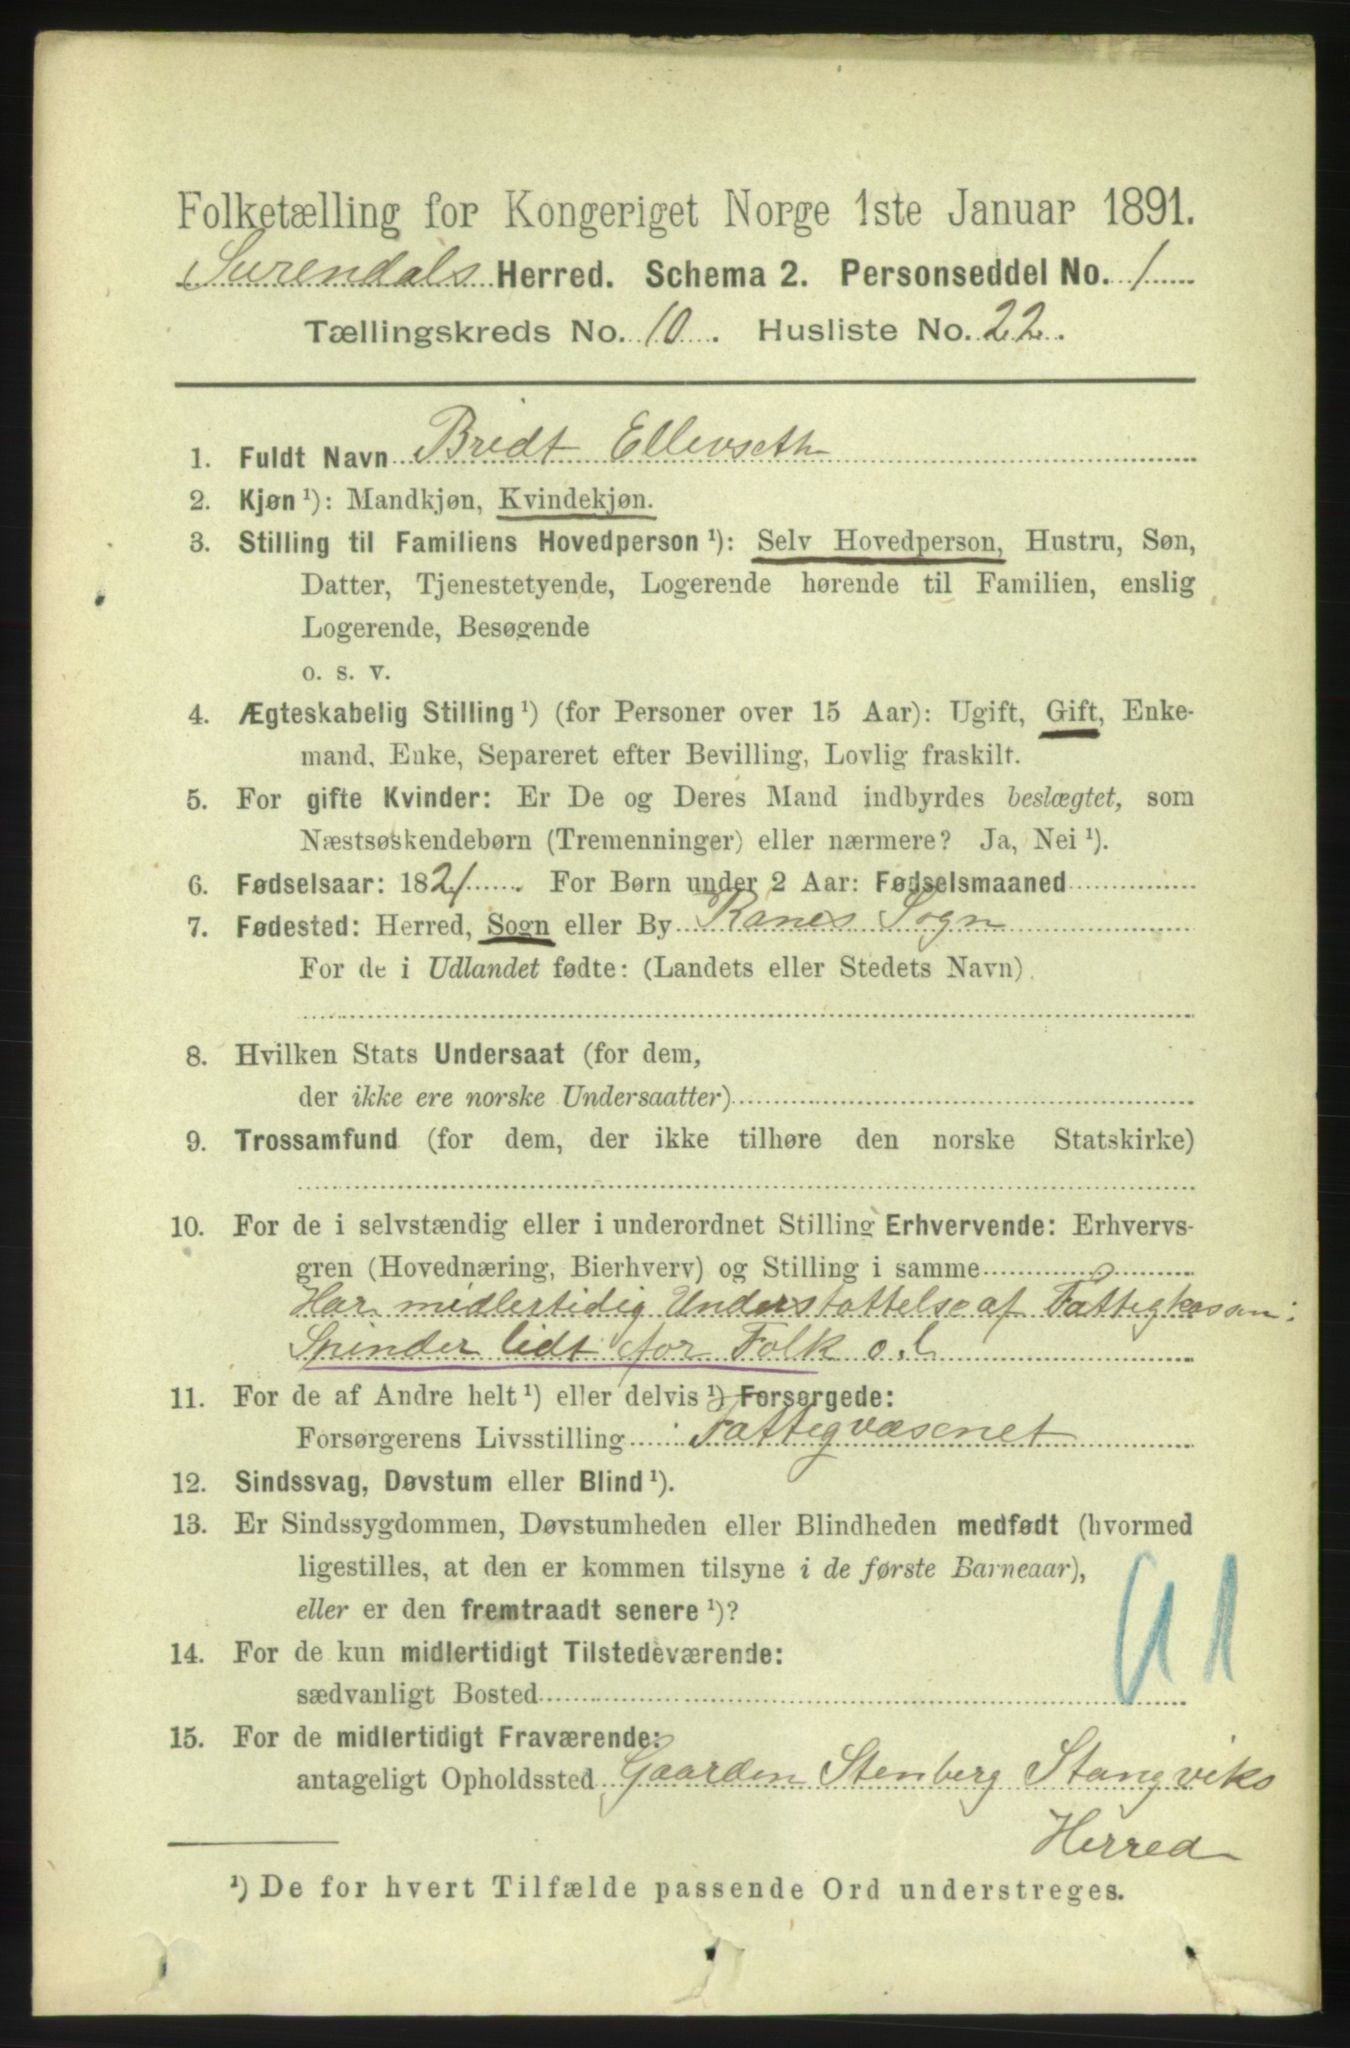 Folketælling for Kongeriget Norge 1ste Januar 1891.
Surendals Herred. Schema 2. Personseddel No. 1
Tællingskreds No. 10. Husliste No. 22.
1. Fuldt Navn Bridt Ellevseth
2. Kjøn ¹): Mandkjøn, Kvindekjøn.
3. Stilling til Familiens Hovedperson ¹): Selv Hovedperson, Hustru, Søn,
Datter, Tjenestetyende, Logerende hørende til Familien, enslig
Logerende, Besøgende
o. s. v.
4. Ægteskabelig Stilling ¹) (for Personer over 15 Aar): Ugift, Gift, Enke-
mand, Enke, Separeret efter Bevilling, Lovlig fraskilt.
5. For gifte Kvinder: Er De og Deres Mand indbyrdes beslægtet, som
Næstsøskendebørn (Tremenninger) eller nærmere? Ja, Nei ¹).
6. Fødselsaar: 1821. For Børn under 2 Aar: Fødselsmaaned
7. Fødested: Herred, Sogn eller By Ranes Sogn
For de i Udlandet fødte: (Landets eller Stedets Navn)
8. Hvilken Stats Undersaat (for dem,
der ikke ere norske Undersaatter)
9. Trossamfund (for dem, der ikke tilhøre den norske Statskirke)
10. For de i selvstændig eller i underordnet Stilling Erhvervende: Erhvervs-
gren (Hovednæring, Bierhverv) og Stilling i samme
Har midlertidig Understøttelse af Fattigkassen:
Spinder lidt for Folk o. l
11. For de af Andre helt ¹) eller delvis ¹) Forsørgede:
Forsørgerens Livsstilling Fattigvæsenet
12. Sindssvag, Døvstum eller Blind ¹).
13. Er Sindssygdommen, Døvstumheden eller Blindheden medfødt (hvormed
ligestilles, at den er kommen tilsyne i de første Barneaar),
eller er den fremtraadt senere ¹)?
14. For de kun midlertidigt Tilstedeværende:
sædvanligt Bosted
15. For de midlertidigt Fraværende:
antageligt Opholdssted Gaarden Stenberg Stangviks
Herred
¹) De for hvert Tilfælde passende Ord understreges.